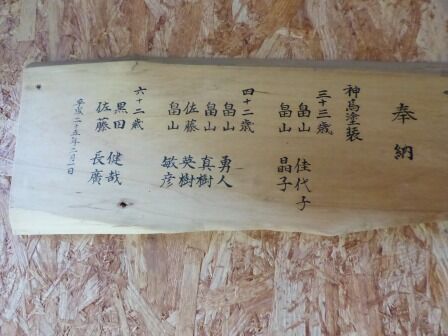 奉納
神馬塗装
三十三歳
畠山 佳代子
畠山 晶子
四十二歳
畠山 勇人
畠山 真樹
佐藤 英樹
畠山 敏彦
六十二歳
黒田 健哉
佐藤 長廣
平成二十五年二月一日